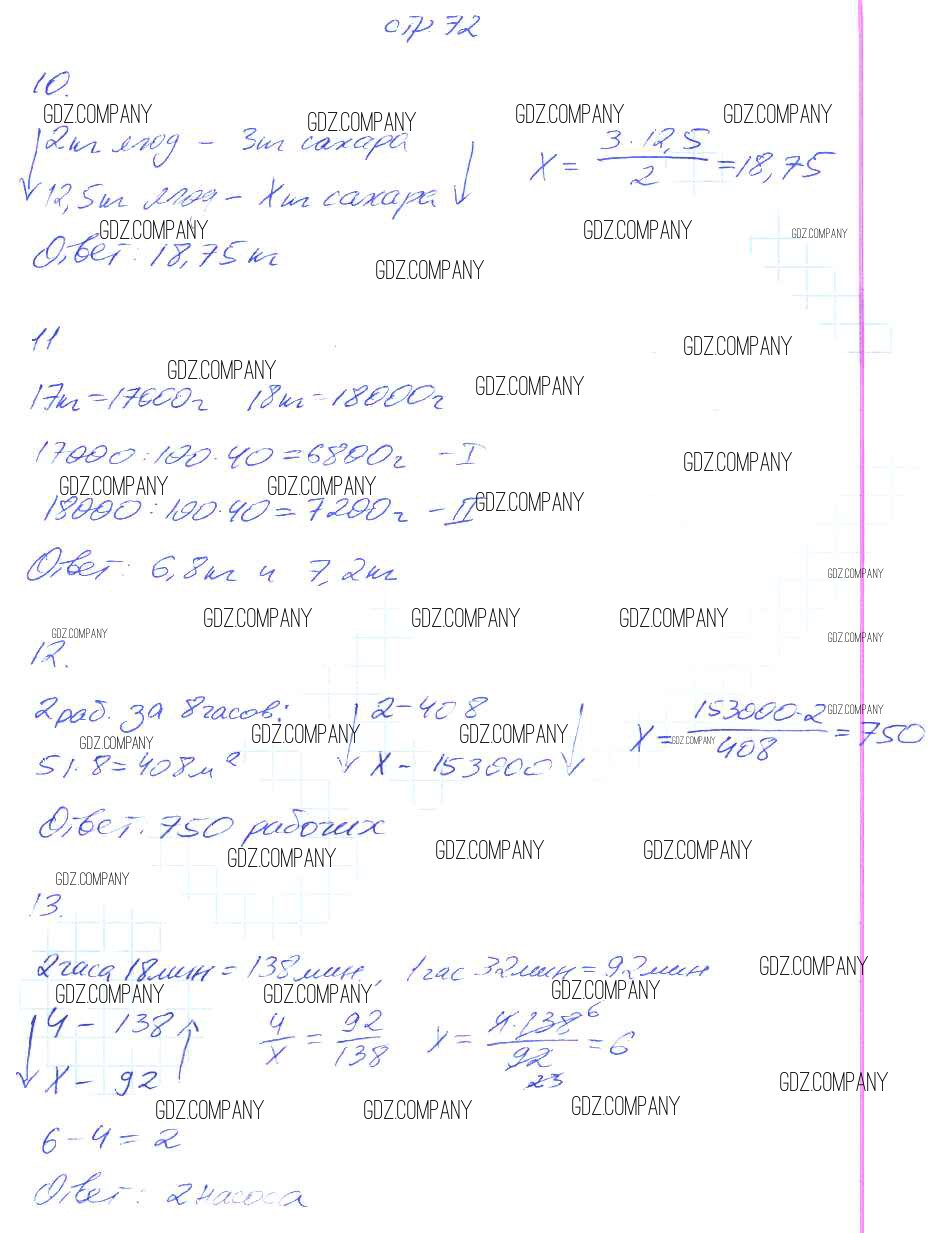 стр. 72
10.
GDZ.COMPANY GDZ.COMPANY GDZ.COMPANY GDZ.COMPANY
2 кг ягод – 3 кг сахара X = 3·12,5/2 = 18,75
12,5 кг ягод – X кг сахара
GDZ.COMPANY GDZ.COMPANY GDZ.COMPANY
Ответ: 18,75 кг
GDZ.COMPANY
11
GDZ.COMPANY
GDZ.COMPANY GDZ.COMPANY
17 кг = 17000 г 18 кг = 18000 г
17000 : 100 · 40 = 6800 г – I
GDZ.COMPANY
GDZ.COMPANY GDZ.COMPANY GDZ.COMPANY
18000 : 100 · 40 = 7200 г – II
Ответ: 6,8 кг и 7,2 кг
GDZ.COMPANY
GDZ.COMPANY GDZ.COMPANY GDZ.COMPANY
GDZ.COMPANY GDZ.COMPANY
12.
2 раб. за 8 часов: 2 – 408 X = 153000·2/408 = 750
GDZ.COMPANY
GDZ.COMPANY GDZ.COMPANY GDZ.COMPANY GDZ.COMPANY
51·8 = 408 м² X – 153000
Ответ. 750 рабочих
GDZ.COMPANY GDZ.COMPANY GDZ.COMPANY
GDZ.COMPANY
13.
2 часа 18 мин = 138 мин, 1 час 32 мин = 92 мин
GDZ.COMPANY
GDZ.COMPANY GDZ.COMPANY GDZ.COMPANY
4 – 138 4/X = 92/138 X = 4·138 6/92 23 = 6
X – 92
GDZ.COMPANY
GDZ.COMPANY GDZ.COMPANY GDZ.COMPANY
6 – 4 = 2
Ответ: 2 насоса